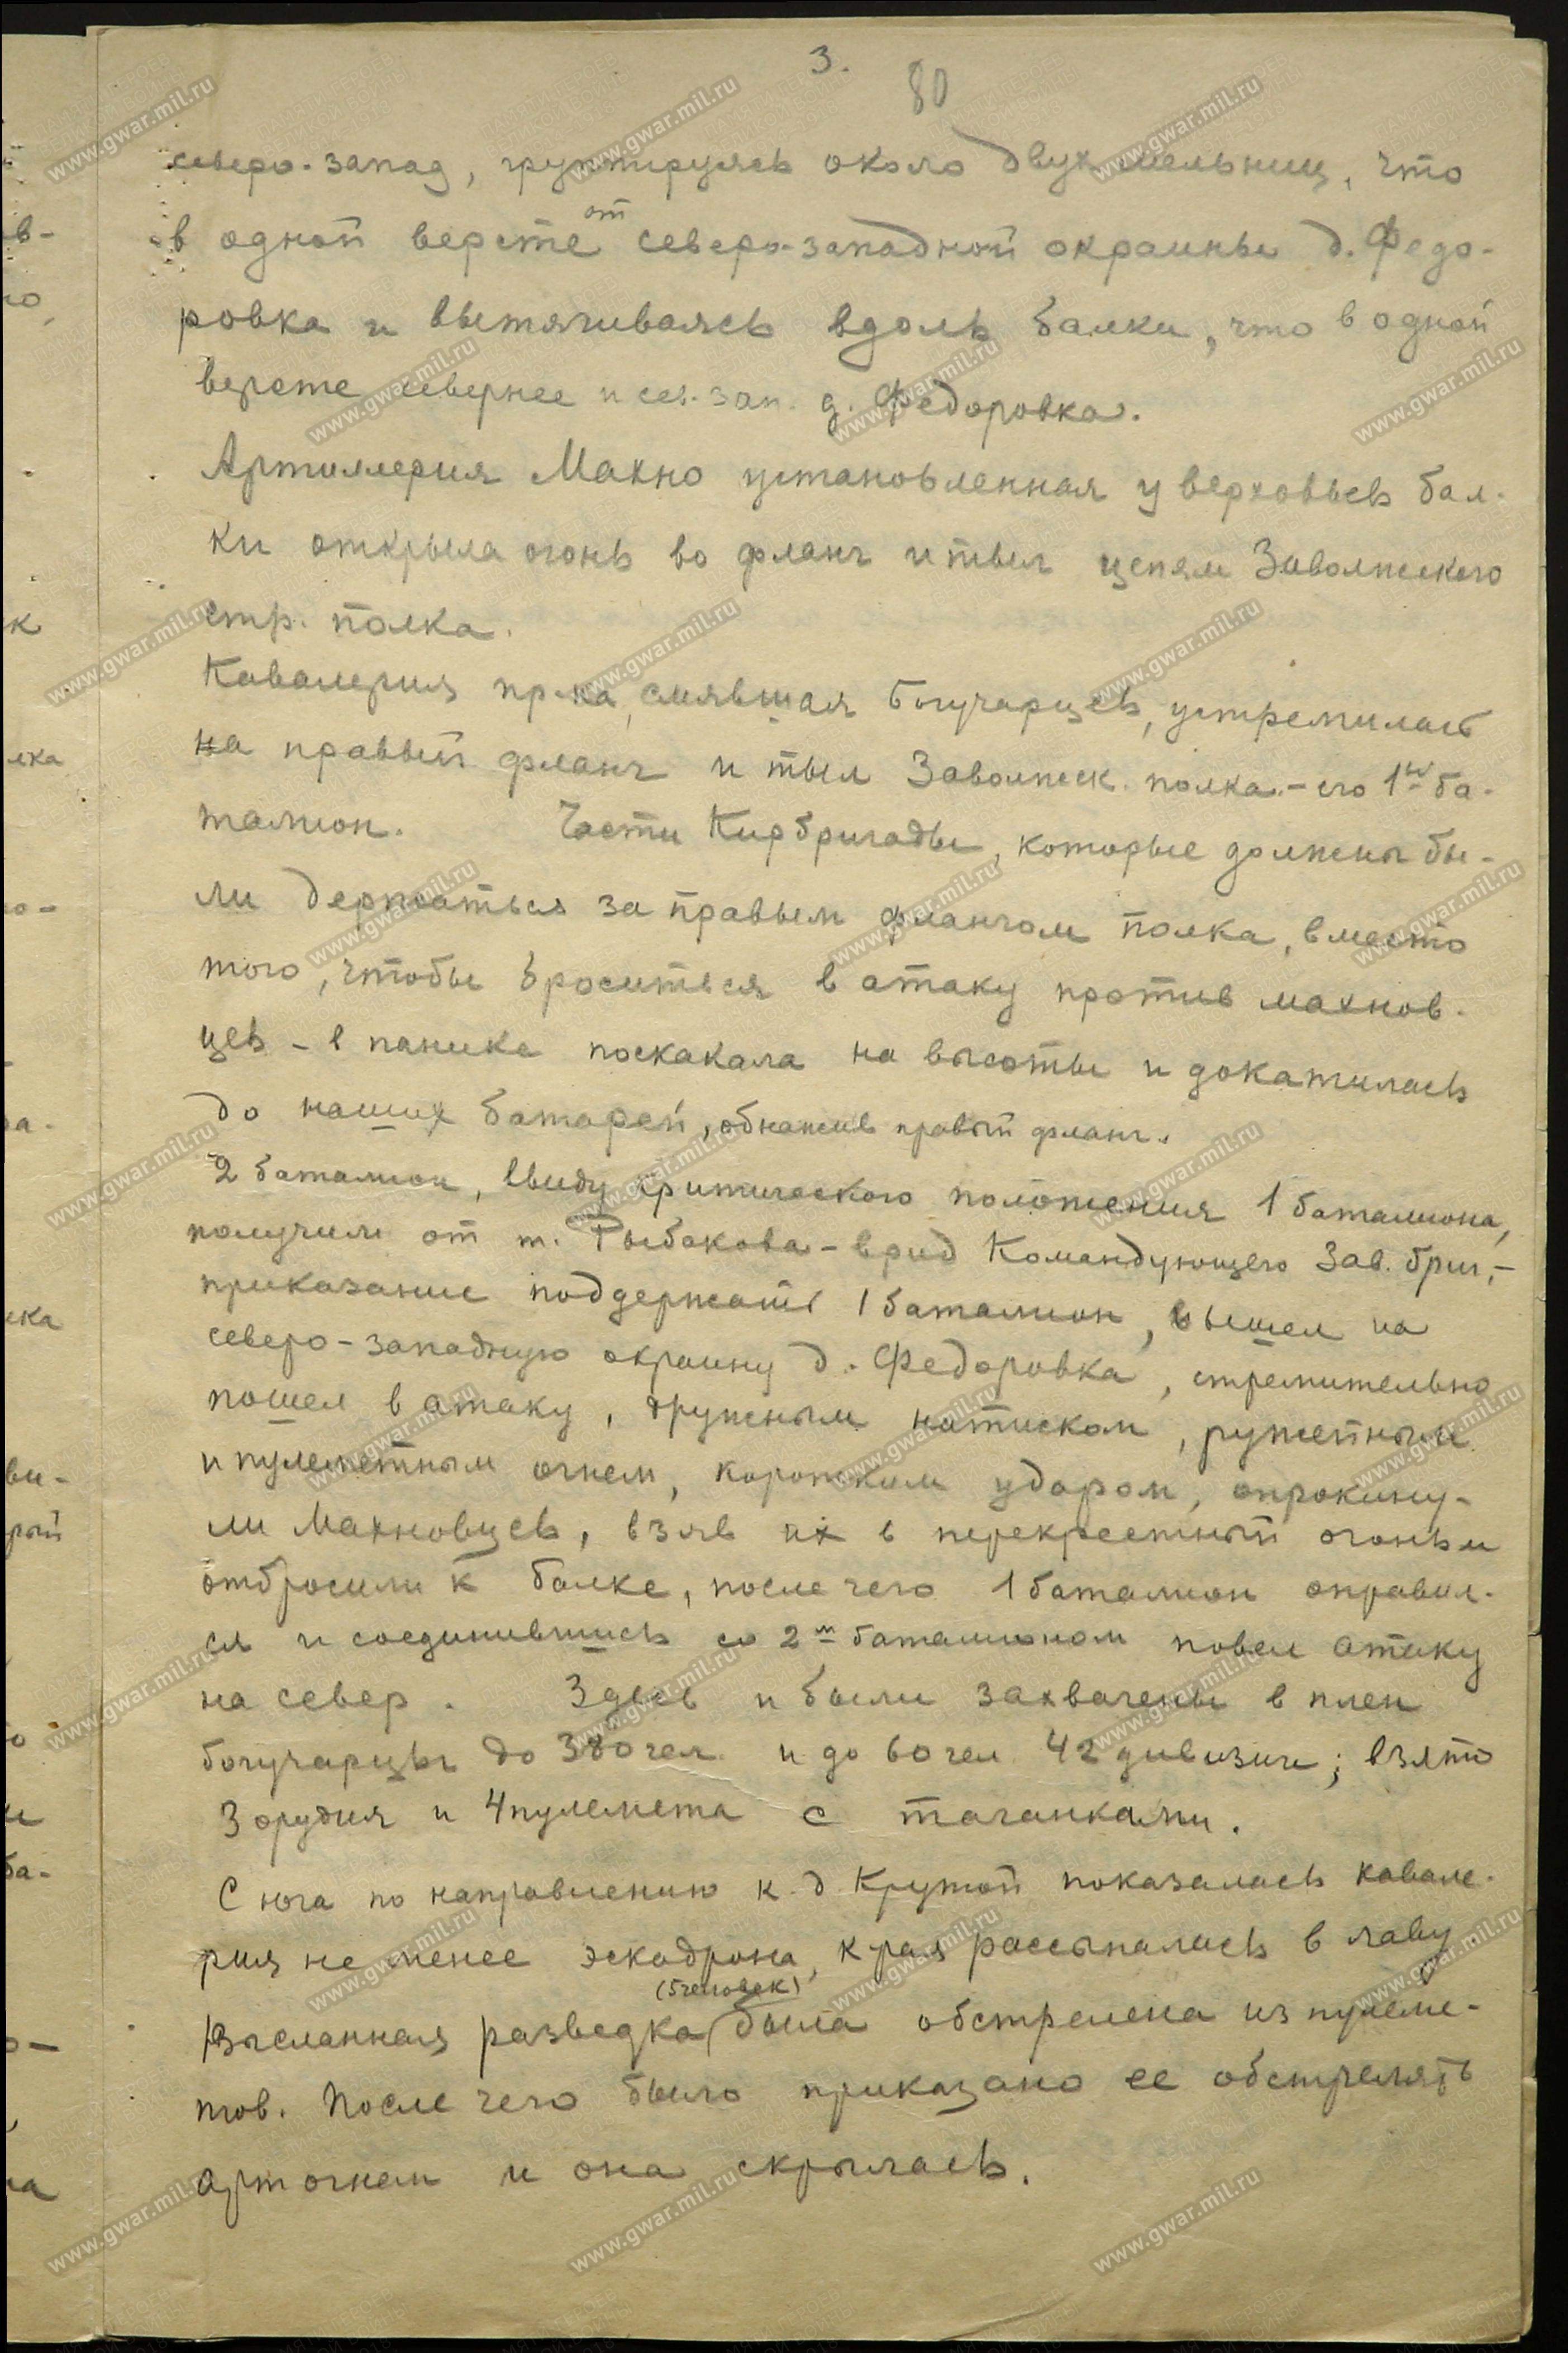 3.
80
северо-запад, группируясь около двух мельниц, что
в одной версте от северо-западной окраины д. Федо-
ровка и вытягиваясь вдоль балки, что в одной
версте севернее и сев.-зап. д. Федоровка.
Артиллерия Махно установленная у верховьев бал-
ки открыла огонь во фланг и тыл цепям Заволжского
стр. полка.
Кавалерия пр-ка, смявшая Богучарцев, устремилась
на правый фланг и тыл Заволжск. полка - его 1ый ба-
талион. Части Кирбригады, которые должны бы-
ли держаться за правым флангом полка, вместо
того, чтобы броситься в атаку против махнов-
цев - в панике поскакала на высоты и докатилась
до наших батарей, обнажив правый фланг.
2 баталион, ввиду критического положения 1 баталиона,
получили от т. Рыбакова - врид Командующего Зав. бриг, -
приказание поддержать 1 баталион, вышел на
северо-западную окраину д. Федоровка, стремительно
пошел в атаку, дружным натиском, ружейным
и пулеметным огнем, коротким ударом, опрокину-
ли Махновцев, взяв их в перекрестный огонь и
отбросили к балке, после чего 1 баталион оправил-
ся и соединившись со 2м баталионом повел атаку
на север. Здесь и были захвачены в плен
богучарцы до 380 чел. и до 60 чел. 42 дивизии; взято
3 орудия и 4 пулемета с тачанками.
С юга по направлению к д. Крутой показалась кавале-
рия не менее эскадрона, к-рая рассыпалась в лаву
Высланная разведка (5 человек) была обстрелена из пулеме-
тов. После чего было приказано ее обстрелять
арт огнем и она скрылась.
в-
ю,
к
лка
ра-
ка
ви-
рый
ба-
на
www.gwar.mil.ru